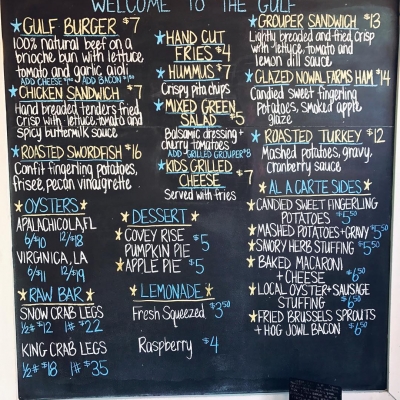 WELCOME TO THE GULF
GULF BURGER $7
100% natural beef on a
brioche bun with lettuce
tomato and garlic aioli
ADD CHEESE ADD BACON
CHICKEN SANDWICH $7
Hand breaded tenders fried
crisp with lettuce, tomato and
spicy buttermilk sauce
ROASTED SWORDFISH $16
Confit fingerling potatoes,
frisee, pecan vinaigrette
OYSTERS
APALACHICOLA, FL
6/$10 12/$18
VIRGINICA, LA
6/$11 12/$19
RAW BAR
SNOW CRAB LEGS
½# $12 1# $22
KING CRAB LEGS
½# $18 1# $35
HAND CUT
FRIES $4
HUMMUS $7
Crispy pita chips
MIXED GREEN
SALAD $5
Balsamic dressing +
cherry tomatoes
ADD GRILLED GROUPER $8
KIDS GRILLED
CHEESE $7
Served with fries
DESSERT
COVEY RISE
PUMPKIN PIE $5
APPLE PIE $5
LEMONADE
Fresh Squeezed $3.50
Raspberry $4
GROUPER SANDWICH $13
Lightly breaded and fried crisp
with lettuce, tomato and
lemon dill sauce
GLAZED NOWAL FARMS HAM $14
Candied sweet fingerling
potatoes, smoked apple
glaze
ROASTED TURKEY $12
Mashed potatoes, gravy,
cranberry sauce
AL A CARTE SIDES
CANDIED SWEET FINGERLING
POTATOES $5.50
MASHED POTATOES + GRAVY $5.50
SAVORY HERB STUFFING $5.50
BAKED MACARONI
+ CHEESE $6.50
LOCAL OYSTER + SAUSAGE
STUFFING $6.50
FRIED BRUSSELS SPROUTS
+ HOG JOWL BACON $6.50